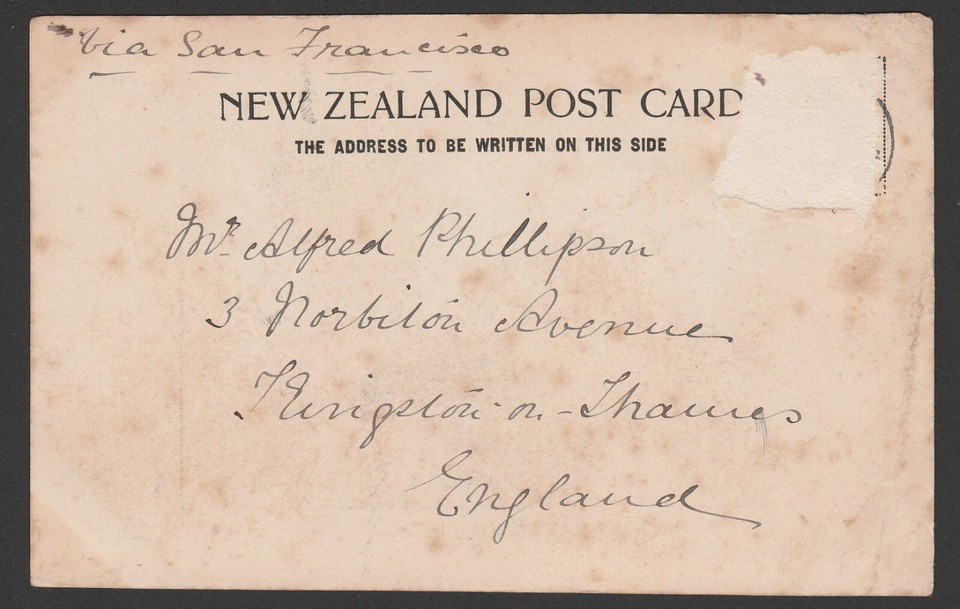 Via San Francisco
NEW ZEALAND POST CARD
THE ADDRESS TO BE WRITTEN ON THIS SIDE
Mr. Alfred Phillipson
3 Norbiton Avenue
Kingston-on-Thames
England